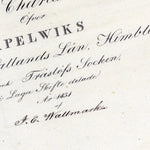 Charta
Öfver
PELWIKS
Hallands Län, Himble
Träslöfs Socken,
Laga Skifte delade
År 1851
af
J. C. Wallmark